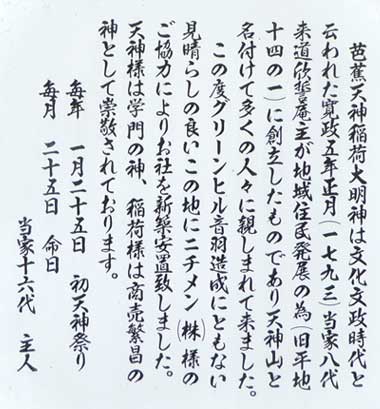 芭蕉天神稲荷大明神は文化文政時代と
云われた寛政五年正月(一七九三)当家八代
来道欣誓庵主が地域住民発展の為(旧平地
十四の一)に創立したものであり天神山と
名付けて多くの人々に親しまれて来ました。
この度グリーンヒル音羽造成にともない
見晴らしの良いこの地にニチメン(株)様の
ご協力によりお社を新築安置致しました。
天神様は学門の神、稲荷様は商売繁昌の
神として崇敬されております。
毎年 一月二十五日 初天神祭り
毎月 二十五日 命日
当家十六代 主人